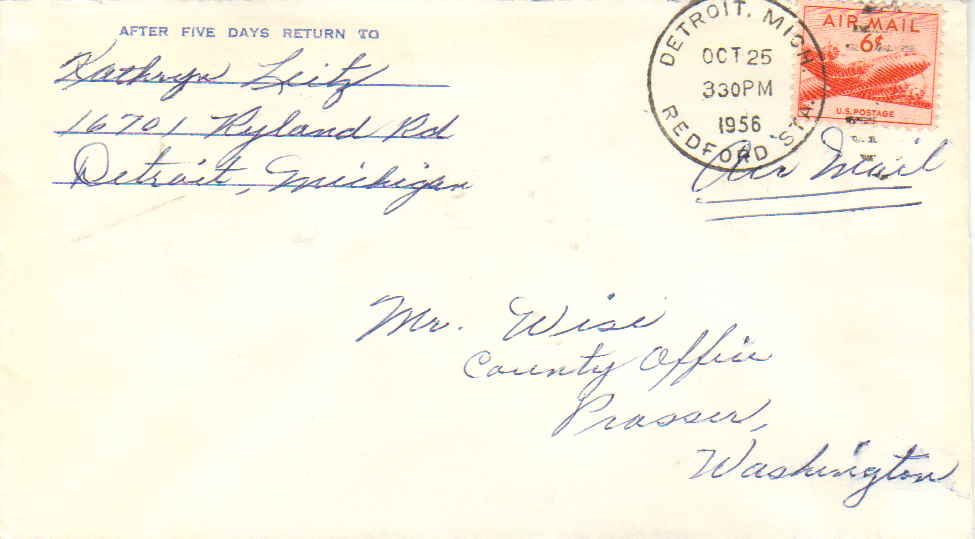 AFTER FIVE DAYS RETURN TO
Kathryn Leitz
16701 Ryland Rd
Detroit, Michigan
DETROIT, MICH.
OCT 25
330PM
1956
REDFORD STA.
AIR MAIL
6¢
U.S. POSTAGE
Air Mail
Mr. Wise
County Office
Prosser,
Washington